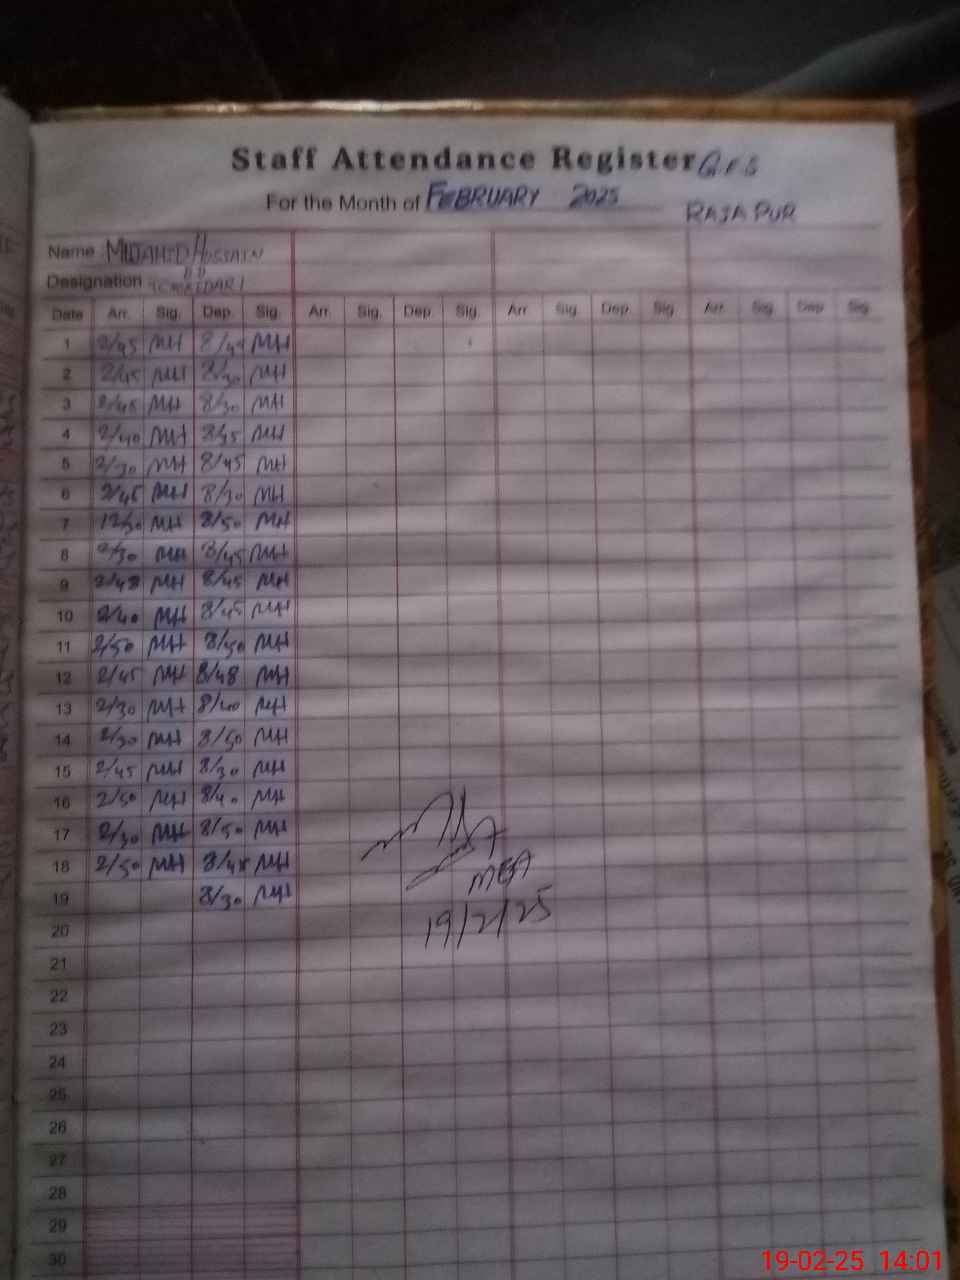 Staff Attendance Register G.P.S
For the Month of FEBRUARY 2025
RAJA PUR
Name HOSSAIN
Designation (CHAKIDAR)
Date Arr. Sig. Dep. Sig. Arr. Sig. Dep. Sig. Arr. Sig. Dep. Sig. Arr. Sig. Dep. Sig.
1 2/45 MH 8/45 MH
2 2/45 MH 8/30 MH
3 2/45 MH 8/30 MH
4 2/40 MH 8/45 MH
5 2/30 MH 8/45 MH
6 2/45 MH 8/30 MH
7 12/30 MH 8/50 MH
8 2/30 MH 8/45 MH
9 2/48 MH 8/45 MH
10 2/40 MH 8/45 MH
11 2/50 MH 8/50 MH
12 2/45 MH 8/48 MH
13 2/30 MH 8/40 MH
14 2/30 MH 8/50 MH
15 2/45 MH 8/30 MH
16 2/50 MH 8/40 MH
17 2/30 MH 8/50 MH
18 2/50 MH 8/45 MH
MEA
19 8/30 MH
19/2/25
20
21
22
23
24
25
26
27
28
29
30
19-02-25 14:01